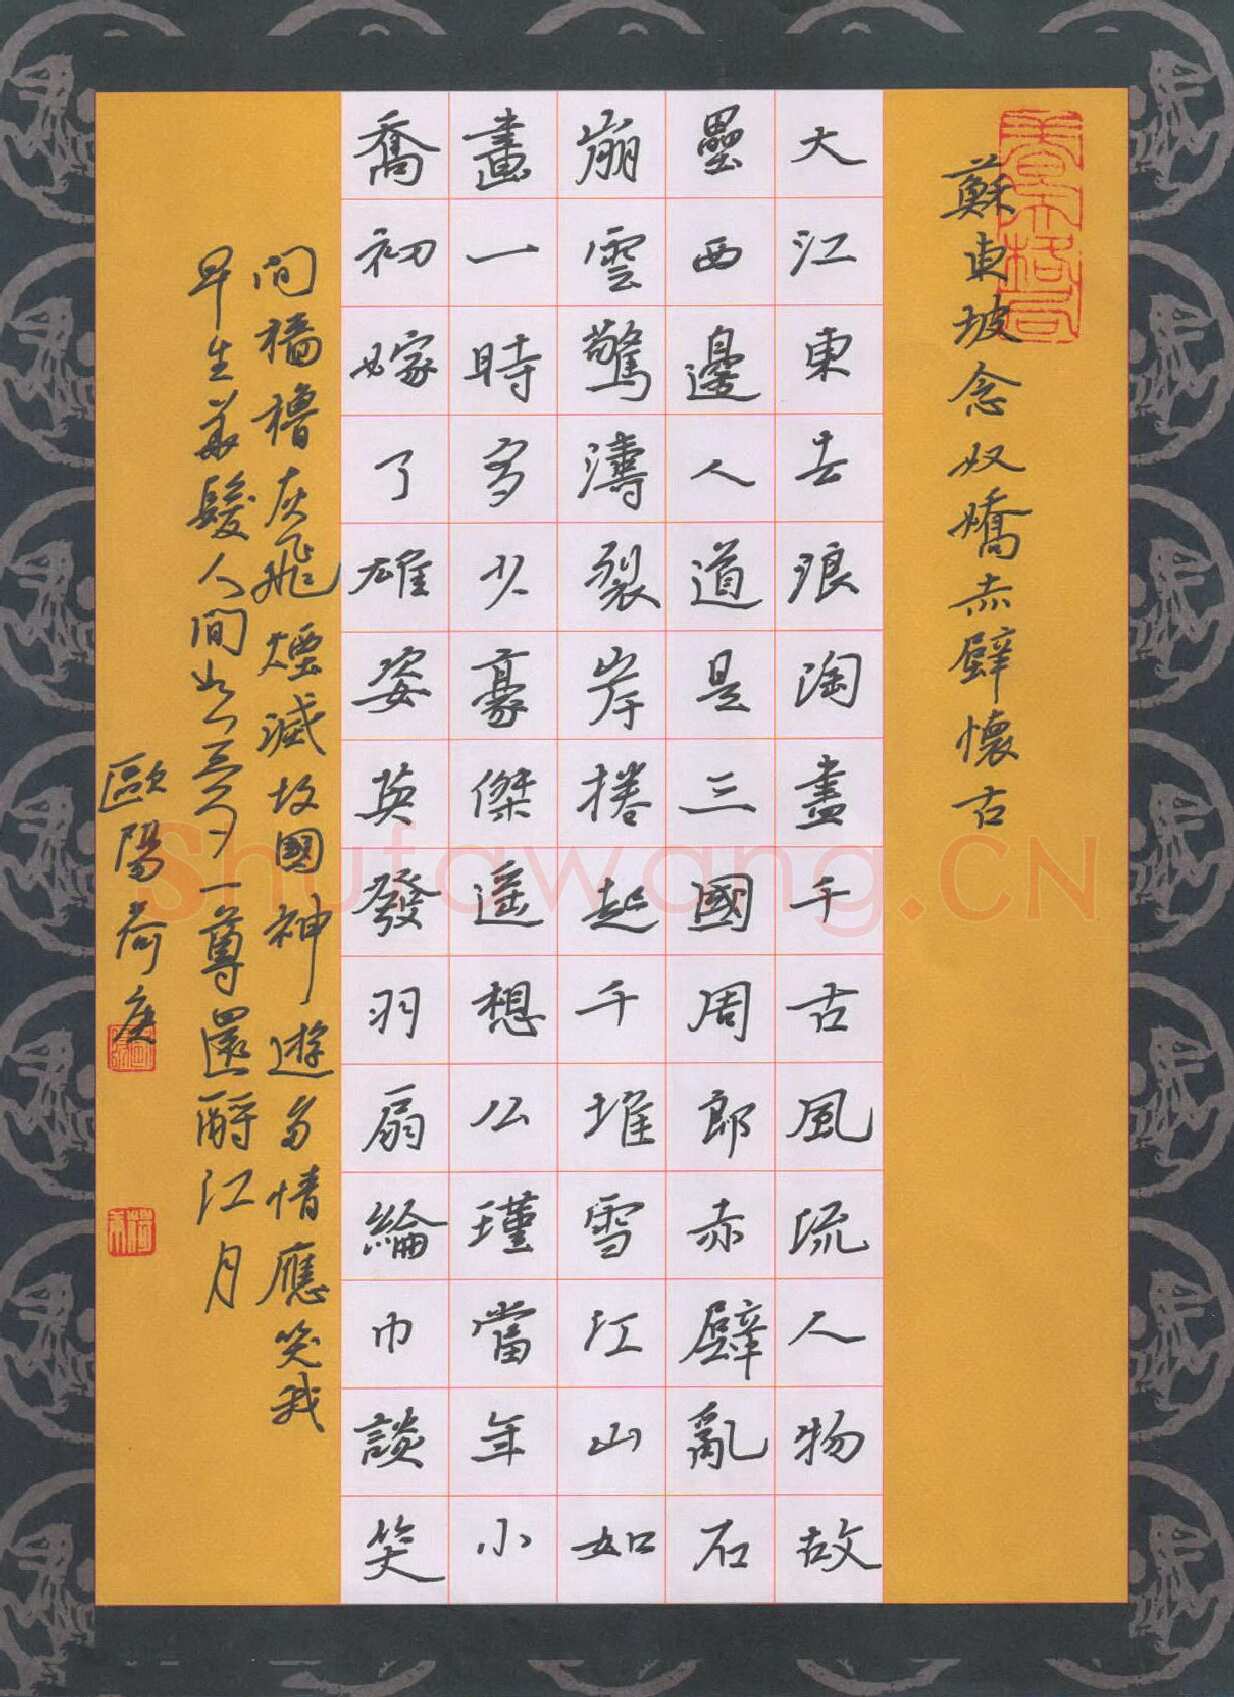 蘇東坡念奴嬌赤壁懷古
大江東去浪淘盡千古風流人物故
壘西邊人道是三國周郎赤壁亂石
崩雲驚濤裂岸捲起千堆雪江山如
畫一時多少豪傑遙想公瑾當年小
喬初嫁了雄姿英發羽扇綸巾談笑
間檣櫓灰飛煙滅故國神遊多情應笑我
早生華髮人間如夢一尊還酹江月
歐陽荷庚
Shufawang.CN